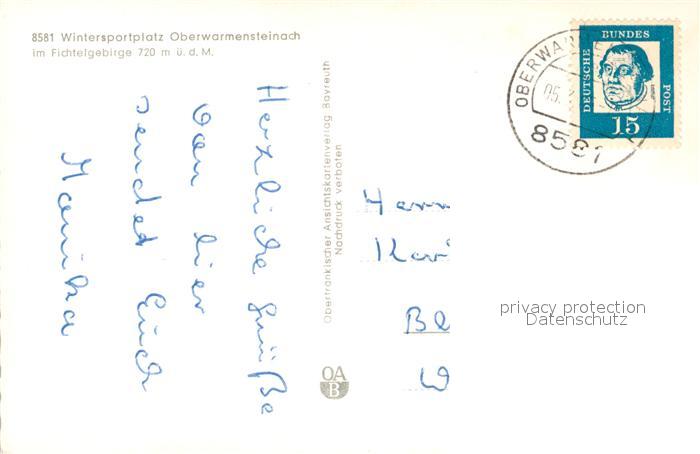 8581 Wintersportplatz Oberwarmensteinach
im Fichtelgebirge 720 m ü. d. M.
Herzliche Grüße
von hier
sendet Euch
Monika
Oberfränkischer Ansichtskartenverlag Bayreuth
Nachdruck verboten
OA
B
OBERWAR
05.
8581
DEUTSCHE BUNDES POST
15
Herrn
Be
W
privacy protection
Datenschutz